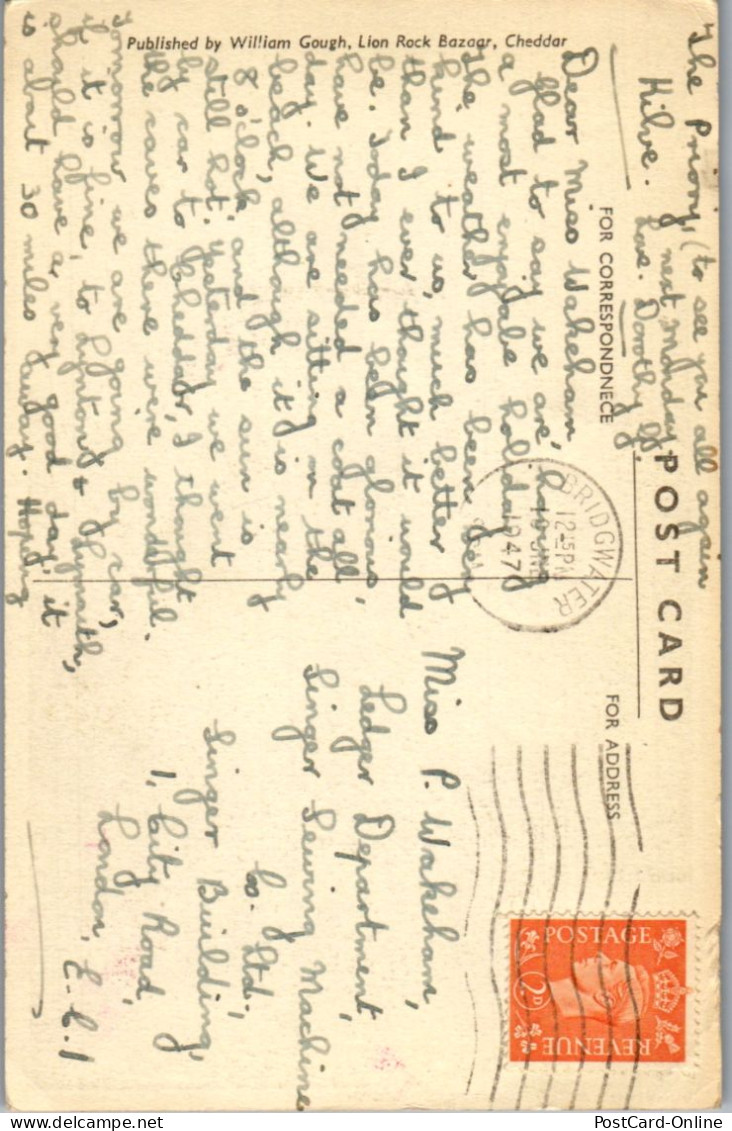 POST CARD
FOR CORRESPONDNECE
FOR ADDRESS
Published by William Gough, Lion Rock Bazaar, Cheddar
The Priory,
Kilve.
Dear Miss Wakeham,
Glad to say we are having
a most enjoyable holiday
the weather has been very
kind to us, much better
than I ever thought it would
be. Today has been glorious,
have not needed a coat all
day. We are sitting on the
beach, although it is nearly
8 o'clock, and the sun is
still hot. Yesterday we went
by car to Cheddar, I thought
the caves there were wonderful.
Tomorrow we are going by car,
if it is fine, to Lynton & Lynmouth,
should have a very good day, it
is about 30 miles away. Hoping
(to see you all again
next Monday.
Love. Dorothy
Miss P. Wakeham,
Ledger Department,
Singer Sewing Machine
Co. Ltd.,
Singer Building,
1, City Road,
London, E.C.1
BRIDGWATER
12 15 PM
19 JNE
1947
POSTAGE
2D
REVENUE
PostCard-Online